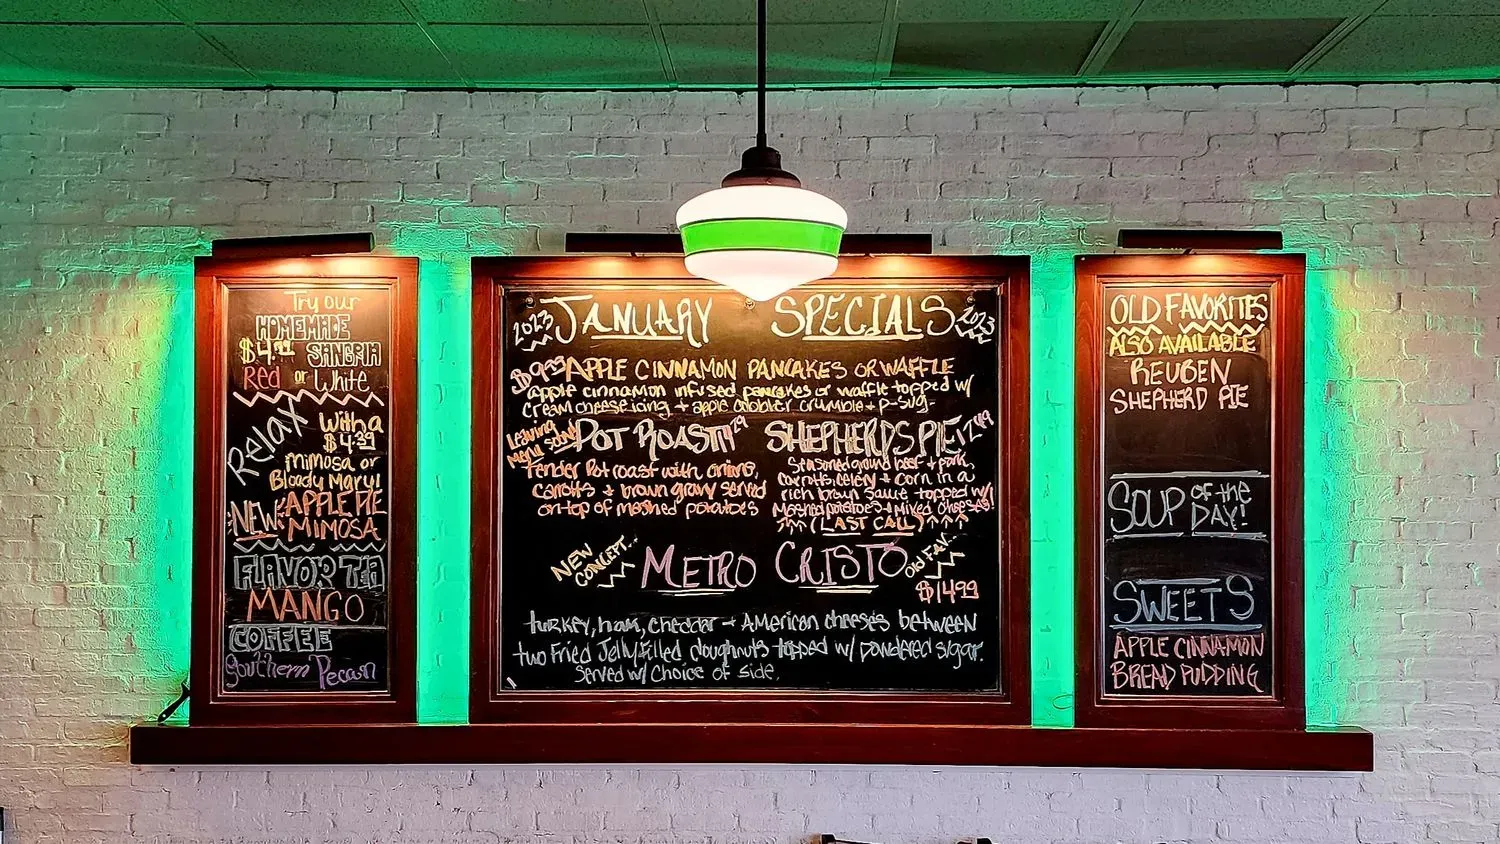 Try our
HOMEMADE
$4.99 SANGRIA
Red or White
RELAX
With a
$4.39
mimosa or
Bloody Mary!
NEW APPLE PIE
MIMOSA
FLAVOR TEA
MANGO
COFFEE
Southern Pecan
2023 JANUARY SPECIALS 2023
APPLE CINNAMON PANCAKES OR WAFFLE
apple cinnamon infused pancakes or waffle topped w/
cream cheese icing + apple cobbler crumble + p-sug-
Leaving
Menu soon
POT ROAST
Tender Pot roast with onions,
carrots + brown gravy served
on top of mashed potatoes
SHEPHERDS PIE 12.49
Seasoned ground beef + pork,
carrots, celery + corn in a
rich brown sauce topped w/
Mashed potatoes + Mixed cheeses!
(LAST CALL)
NEW
CONCEPT...
METRO CRISTO
OLD FAV...
$14.99
turkey, ham, cheddar + American cheeses between
two Fried Jelly filled doughnuts topped w/ powdered sugar.
Served w/ choice of side.
OLD FAVORITES
ALSO AVAILABLE
REUBEN
SHEPHERD PIE
SOUP OF the DAY!
SWEETS
APPLE CINNAMON
BREAD PUDDING